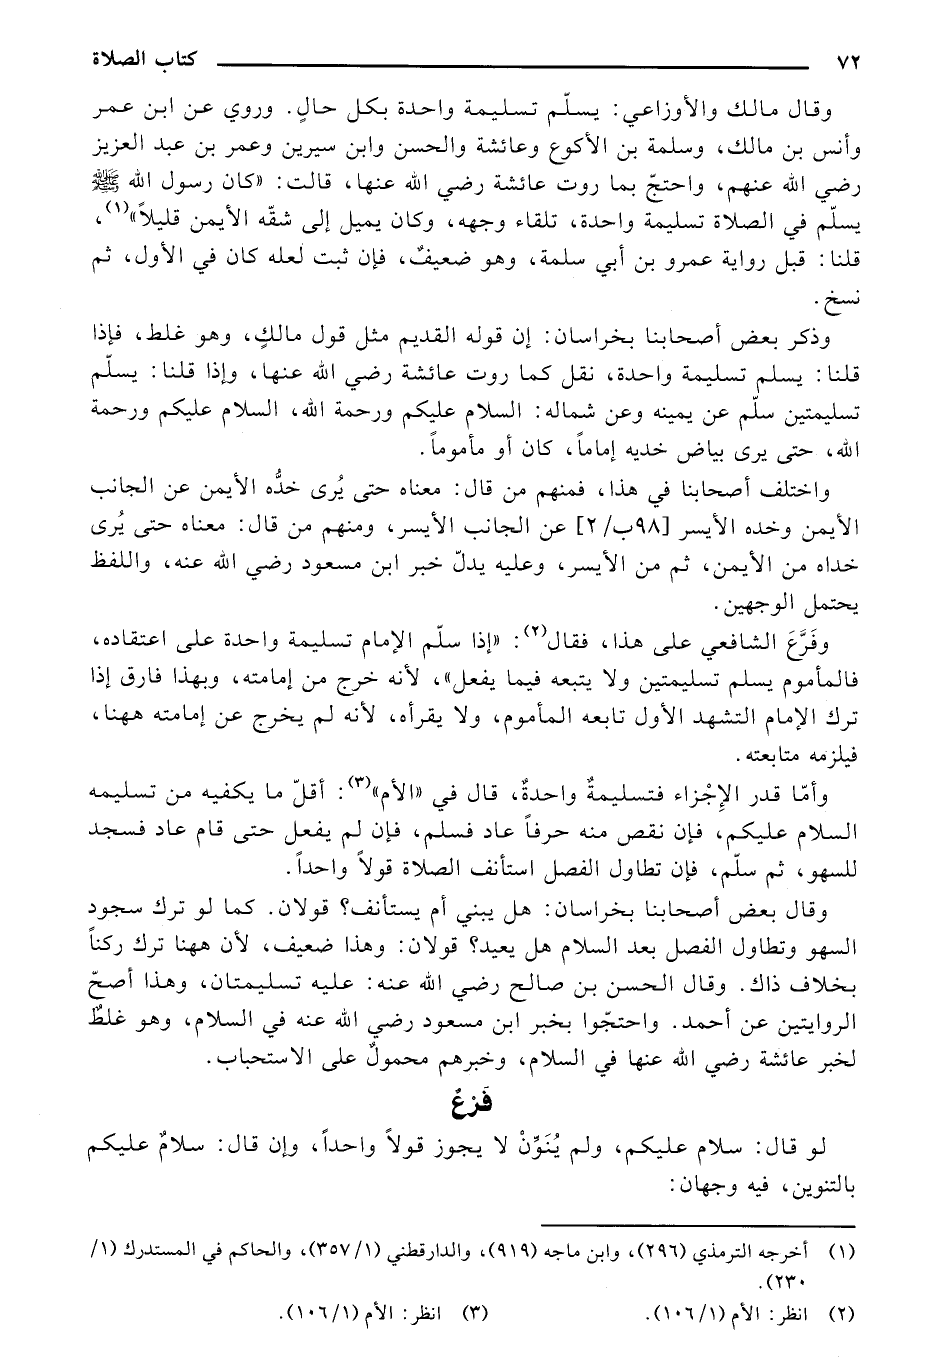 ٧٢ كتاب الصلاة
وقال مالك والأوزاعي: يسلّم تسليمة واحدة بكل حالٍ. وروي عن ابن عمر
وأنس بن مالك، وسلمة بن الأكوع وعائشة والحسن وابن سيرين وعمر بن عبد العزيز
رضي الله عنهم، واحتجّ بما روت عائشة رضي الله عنها، قالت: «كان رسول الله ﷺ
يسلّم في الصلاة تسليمة واحدة، تلقاء وجهه، وكان يميل إلى شقّه الأيمن قليلاً»(١)،
قلنا: قبل رواية عمرو بن أبي سلمة، وهو ضعيفٌ، فإن ثبت لعله كان في الأول، ثم
نسخ.
وذكر بعض أصحابنا بخراسان: إن قوله القديم مثل قول مالكٍ، وهو غلط، فإذا
قلنا: يسلم تسليمة واحدة، نقل كما روت عائشة رضي الله عنها، وإذا قلنا: يسلّم
تسليمتين سلّم عن يمينه وعن شماله: السلام عليكم ورحمة الله، السلام عليكم ورحمة
الله، حتى يرى بياض خديه إماماً، كان أو مأموماً.
واختلف أصحابنا في هذا، فمنهم من قال: معناه حتى يُرى خدُّه الأيمن عن الجانب
الأيمن وخده الأيسر [٩٨ب/ ٢] عن الجانب الأيسر، ومنهم من قال: معناه حتى يُرى
خداه من الأيمن، ثم من الأيسر، وعليه يدلّ خبر ابن مسعود رضي الله عنه، واللفظ
يحتمل الوجهين.
وفَرَّعَ الشافعي على هذا، فقال(٢): «إذا سلّم الإمام تسليمة واحدة على اعتقاده،
فالمأموم يسلم تسليمتين ولا يتبعه فيما يفعل»، لأنه خرج من إمامته، وبهذا فارق إذا
ترك الإمام التشهد الأول تابعه المأموم، ولا يقرأه، لأنه لم يخرج عن إمامته ههنا،
فيلزمه متابعته.
وأمّا قدر الإِجْزاء فتسليمةٌ واحدةٌ، قال في «الأم»(٣): أقلّ ما يكفيه من تسليمه
السلام عليكم، فإن نقص منه حرفاً عاد فسلم، فإن لم يفعل حتى قام عاد فسجد
للسهو، ثم سلّم، فإن تطاول الفصل استأنف الصلاة قولاً واحداً.
وقال بعض أصحابنا بخراسان: هل يبني أم يستأنف؟ قولان. كما لو ترك سجود
السهو وتطاول الفصل بعد السلام هل يعيد؟ قولان: وهذا ضعيف، لأن ههنا ترك ركناً
بخلاف ذاك. وقال الحسن بن صالح رضي الله عنه: عليه تسليمتان، وهذا أصحّ
الروايتين عن أحمد. واحتجّوا بخبر ابن مسعود رضي الله عنه في السلام، وهو غلطٌ
لخبر عائشة رضي الله عنها في السلام، وخبرهم محمولٌ على الاستحباب.
فَرْعٌ
لو قال: سلام عليكم، ولم يُنَوِّنْ لا يجوز قولاً واحداً، وإن قال: سلامٌ عليكم
بالتنوين، فيه وجهان:
(١) أخرجه الترمذي (٢٩٦)، وابن ماجه (٩١٩)، والدارقطني (١/ ٣٥٧)، والحاكم في المستدرك (١/
٢٣٠).
(٢) انظر: الأم (١/ ١٠٦). (٣) انظر: الأم (١/ ١٠٦).